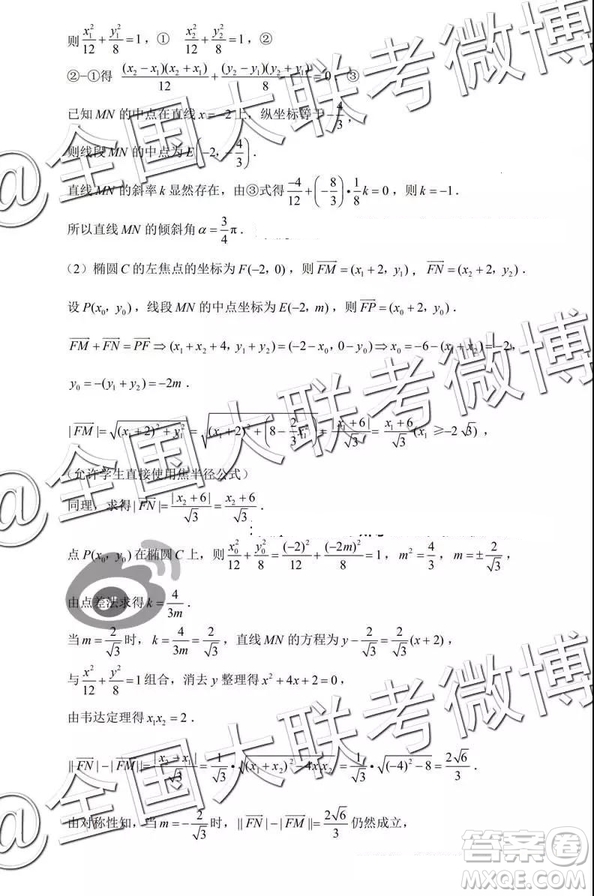 则x₁²/12+y₁²/8=1，① x₂²/12+y₂²/8=1，②
②−①得 (x₂−x₁)(x₂+x₁)/12+(y₂−y₁)(y₂+y₁)/8=0．③
已知MN的中点在直线x=−2上，纵坐标等于−4/3，
则线段MN的中点为E(−2,−4/3)．
直线MN的斜率k显然存在，由③式得−4/12+(−8/3)•1/8k=0，则k=−1．
所以直线MN的倾斜角α=3/4π．
（2）椭圆C的左焦点的坐标为F(−2,0)，则FM=(x₁+2,y₁)，FN=(x₂+2,y₂)．
设P(x₀,y₀)，线段MN的中点坐标为E(−2,m)，则FP=(x₀+2,y₀)．
FM+FN=PF⇒(x₁+x₂+4,y₁+y₂)=(−2−x₀,0−y₀)⇒x₀=−6−(x₁+x₂)=−2，
y₀=−(y₁+y₂)=−2m．
|FM|=√((x₁+2)²+y₁²)=√((x₁+2)²+[8−2/3x₁²])=|x₁+6|/√3=(x₁+6)/√3(x₁≥−2√3)，
（允许学生直接使用焦半径公式）
同理，求得|FN|=|x₂+6|/√3=(x₂+6)/√3．
点P(x₀,y₀)在椭圆C上，则x₀²/12+y₀²/8=(−2)²/12+(−2m)²/8=1，m²=4/3，m=±2/√3，
由点差法求得k=4/3m．
当m=2/√3时，k=4/3m=2/√3，直线MN的方程为y−2/√3=2/√3(x+2)，
与x²/12+y²/8=1组合，消去y整理得x²+4x+2=0，
由韦达定理得x₁x₂=2．
||FN|−|FM||=|x₂−x₁|/√3=1/√3•√((x₁+x₂)²−4x₁x₂)=1/√3•√((−4)²−8)=2√6/3．
由对称性知，当m=−2/√3时，||FN|−|FM||=2√6/3仍然成立，
@全国大联考微博
@全国大联考微博
@全国大联考微博
答案圈
MXQE.COM